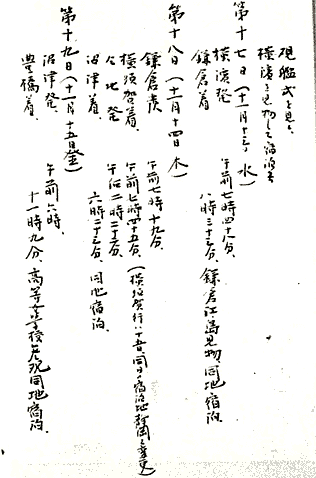 観艦式を見る
横濱を見物して宿泊す
第十七日(十一月十三日、水)
横濱発 午前七時四十八分、
鎌倉着 八時三十三分、鎌倉江ノ島見物、同地宿泊。
第十八日(十一月十四日 木)
鎌倉発 午前七時十九分、
横須賀着、午前七時四十五分、(横須賀行八十五名、同日ノ宿泊地静岡と変更)
仝地発 午后二時二十三分、
沼津着、六時二十三分、同地宿泊。
第十九日(十一月十五日、金)
沼津発、午前六時、
豊橋着、十一時九分、高等女学校参観同地宿泊。